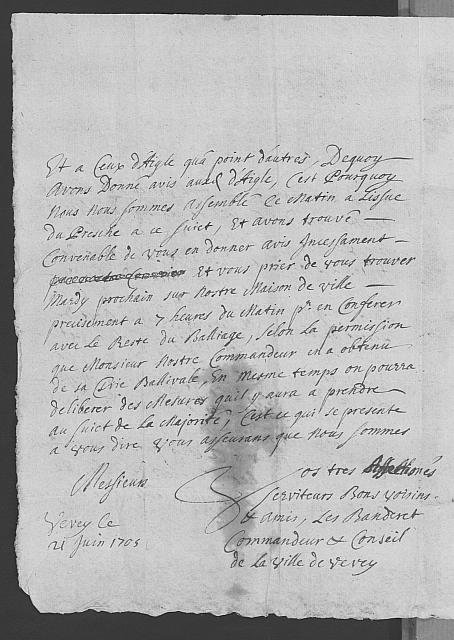 Et a Ceux d'Aigle qu'a point d'autres, Dequoy
avons Donné avis aux d'Aigle, C'est Pourquoy
Nous Nous sommes assemblé Ce Matin a L'issue
du Presche a ce sujet, Et avons trouvé
Convenable de vous en donner avis Incessament
Et vous prier de vous trouver
Mardy prochain sur Nostre Maison de ville
precisement a 7 heures du Matin pr. en Conferer
avec Le Reste du Balliage, selon La permission
que Monsieur Nostre Commandeur en a obtenu
de sa Ctie Ballivale, En Mesme temps on pourra
deliberer des Mesures qu'il y aura a prendre
au sujet de La Majorité, C'est ce qui se presente
a vous dire vous asseurans que Nous sommes
Messieurs
Vos tres Affectionés
serviteurs Bons voisins
& amis, Les Banderet
Commandeur & Conseil
de La ville de Vevey
Vevey Ce
21 Juin 1705